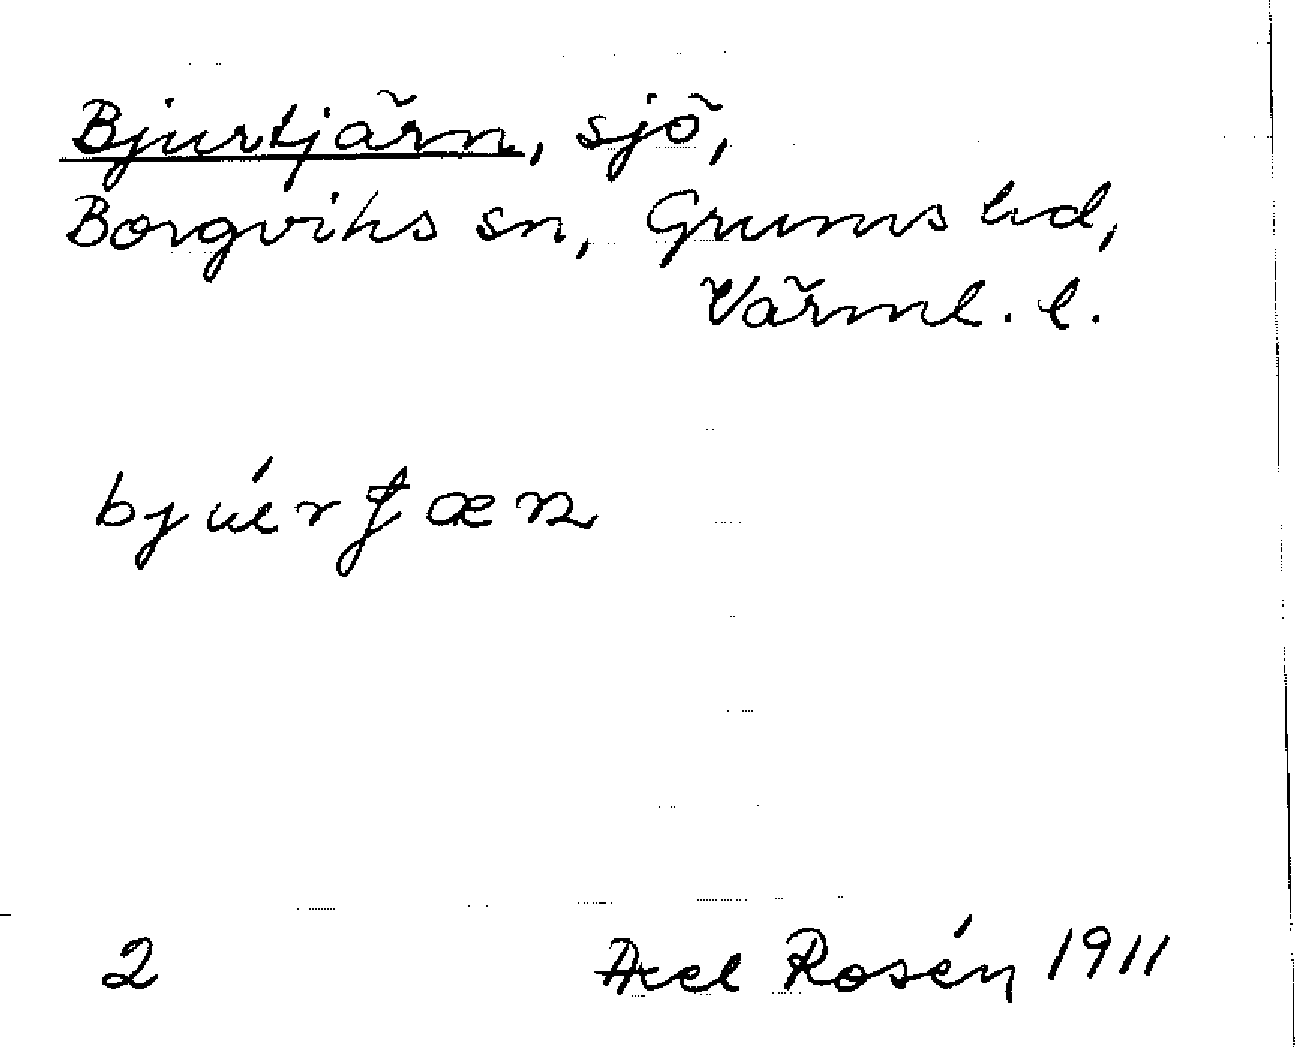 Bjurtjärn, sjö,
Borgviks sn, Grums hd,
Värml. l.
2
Axel Rosén 1911